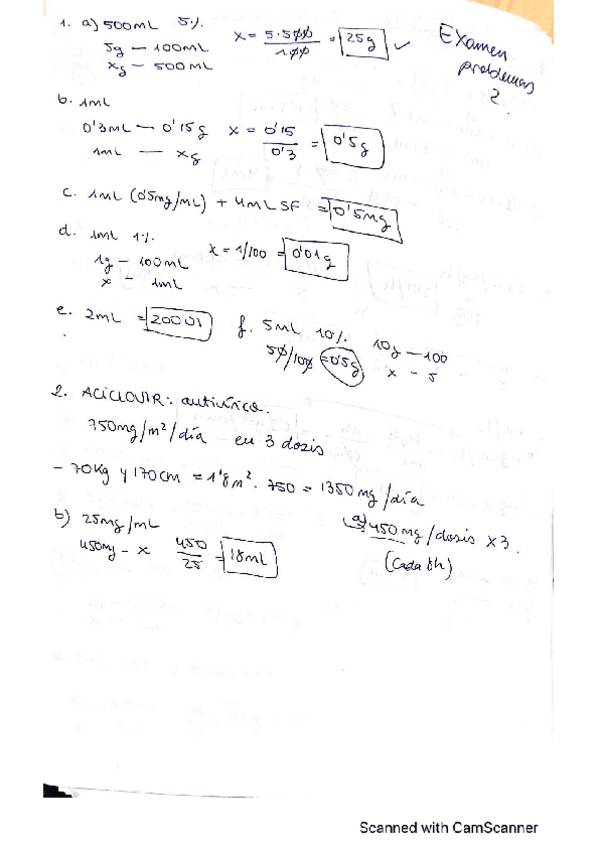 1. a) 500mL 5% x = 5·500/100 = 25g ✓
5g — 100mL
xg — 500mL
Examen
problemas
2.
b. 1mL
0'3mL — 0'15g x = 0'15/0'3 = 0'5g
1mL — xg
c. 1mL (0'5mg/mL) + 4mL SF = 0'5mg
d. 1mL 1% x = 1/100 = 0'01g
1g — 100mL
x — 1mL
e. 2mL = 2000UI
f. 5mL 10% 10g — 100
50/100 = 0'5g x - 5
2. ACICLOVIR: antivírico.
750mg/m²/día en 3 dosis
- 70Kg y 170cm = 1'8m². 750 = 1350mg/día
a) 450mg/dosis x3.
(cada 8h)
b) 25mg/mL
450mg - x 450/25 = 18mL
Scanned with CamScanner